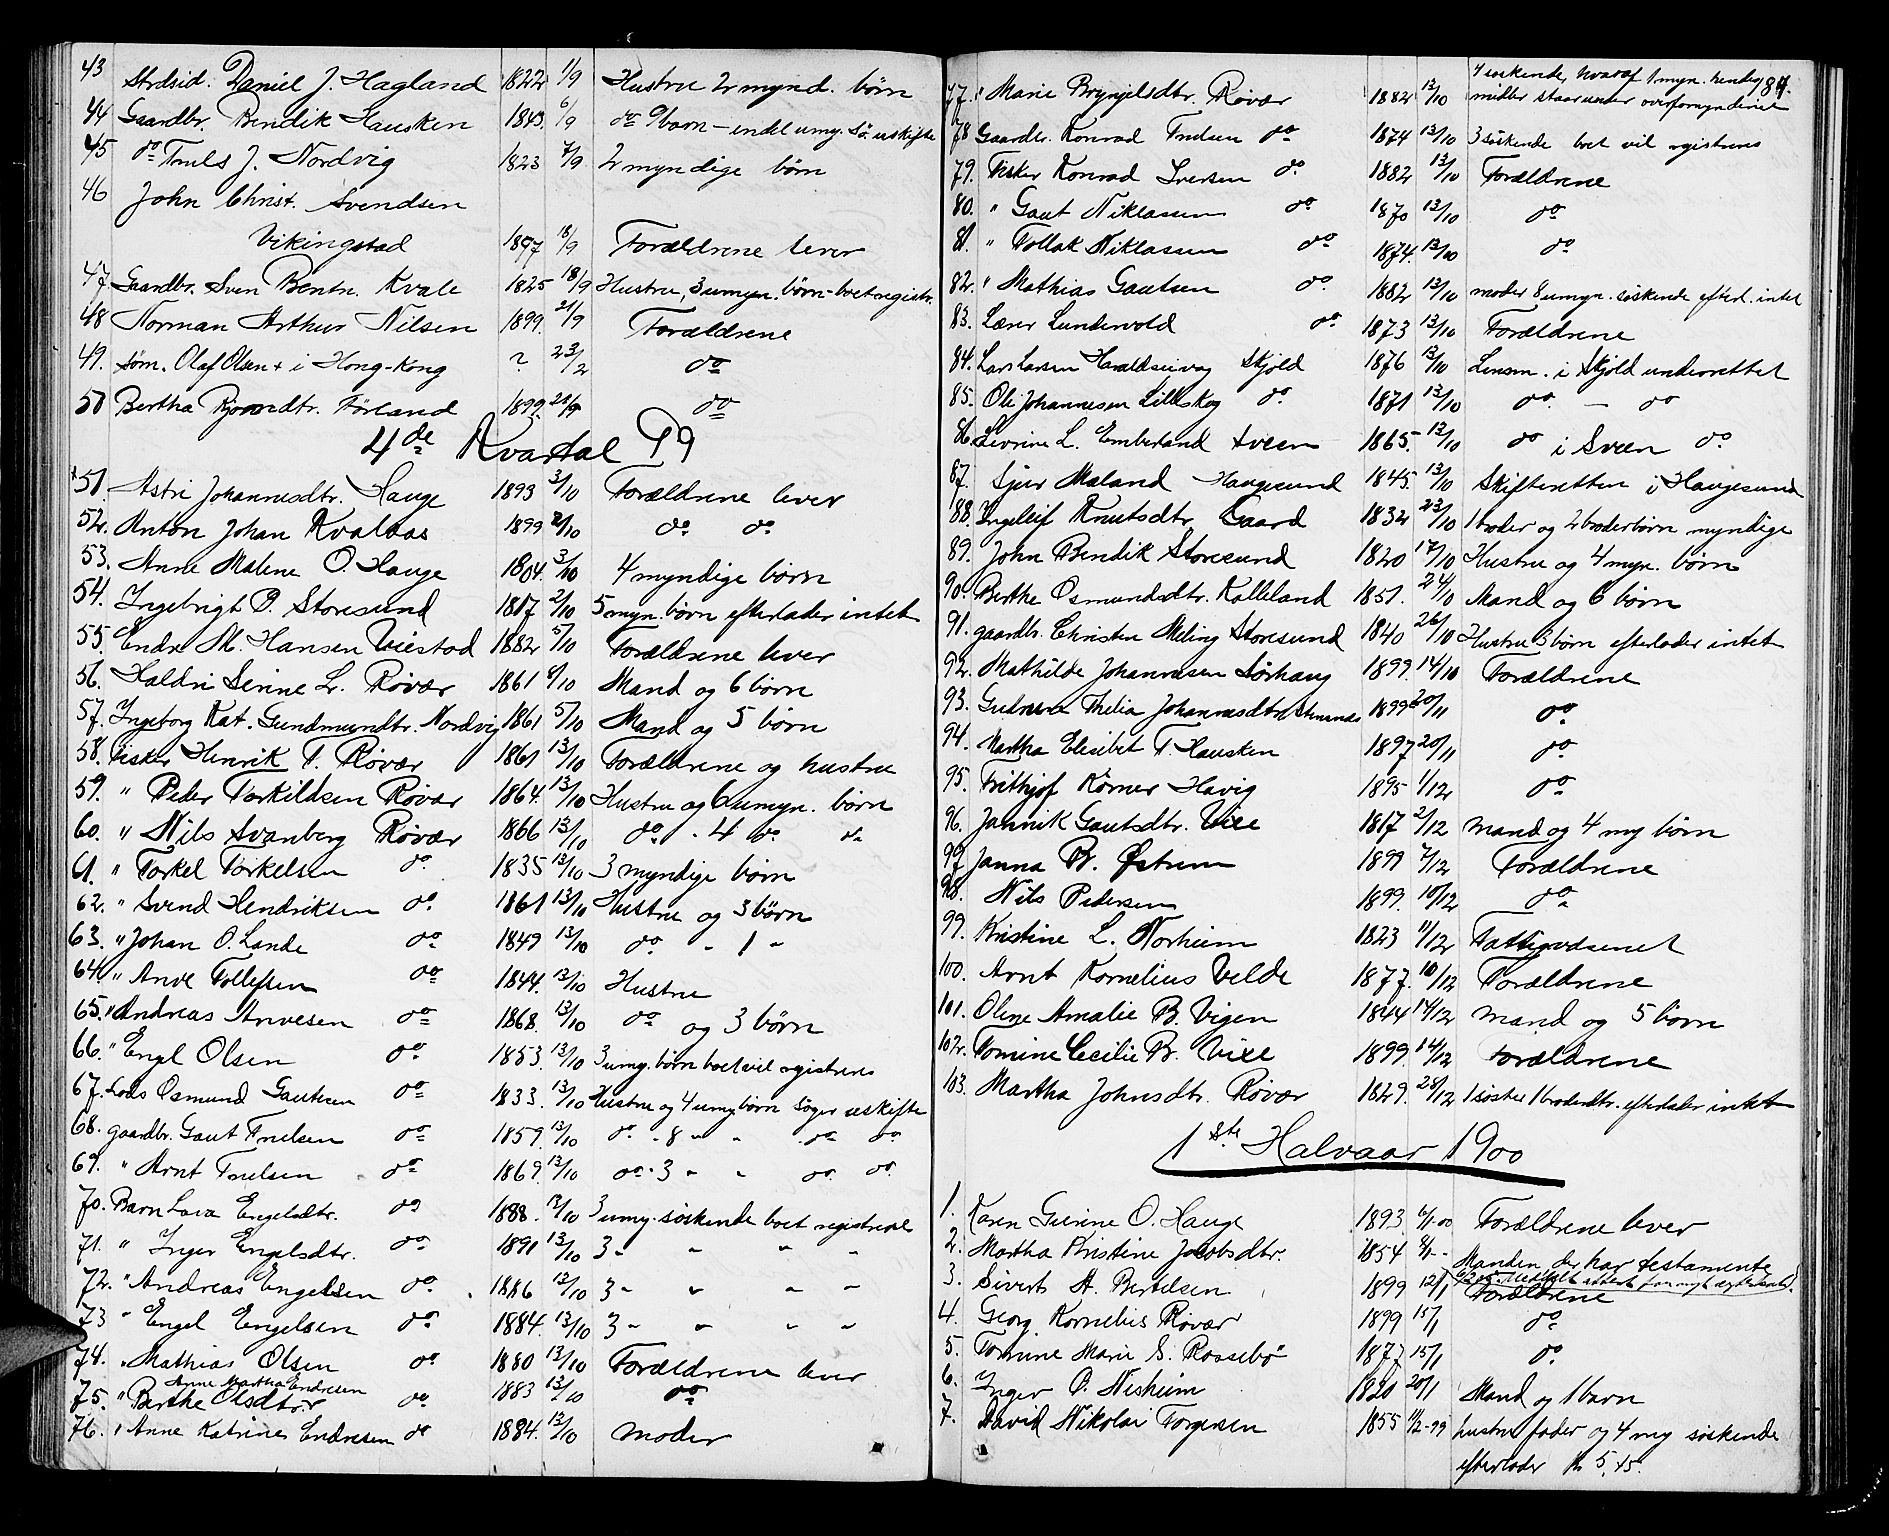 43 Strdsid. Daniel J. Hagland 1822 1/9 Hustru 2 mynd. børn
44 Gaardbr. Bendik Hausken 1843 6/9 do 9 barn – endel umy. sø. uskifte
45 do Truls J. Nordvig 1823 7/9 2 myndige børn
46 John Christ. Svendsen
Vikingstad 1897 18/9 Forældrene lever
47 Gaardbr. Sven Bentn. Kvale 1825 18/9 Hustru, 3 umyn. børn – boet registr.
48 Norman Arthur Nilsen 1899. 21/9 Forældrene
49. Søm. Olaf Olsen + i Hong-Kong ? 23/2 do
50 Bertha Bjørndtr. Førland 1899. 28/9 do
4de Kvartal 99
51. Astri Johannesdtr. Hauge 1893 3/10 Forældrene lever
52. Anton Johan Kvalvaas 1899 2/10 do do
53. Anne Malene O. Hauge 1804. 3/10 4 myndige børn
54. Ingebrigt P. Storesund 1817 2/10 5 myn. børn efterlader intet
55. Endre M. Hansen Viestad 1882 5/10 Forældrene lever
56. Haldri Serine L. Røvær 1861 6/10 Mand og 6 børn
57. Ingeborg Kat. Gundmundtr. Nordvig 1861 5/10 Mand og 5 børn
58. Fisker Henrik T. Røvær 1861 13/10 Forældrene og hustru
59. " Peder Torkildsen Røvær 1864. 13/10 Hustru og 6 umyn. børn
60. " Nils Svanberg Røvær 1866 13/10 do. 4 do do
61. " Torkel Torkelsen do. 1835 13/10 3 myndige børn
62. " Svend Hendriksen do. 1861 13/10 Hustru og 3 børn
63. " Johan O. Lande do 1849 13/10 do. " 1 "
64. " Arve Tollefsen do 1844. 13/10 Hustru
65. " Andreas Arvesen do 1868. 13/10 do og 3 børn
66. " Engel Olsen do 1853. 13/10 3 umy. børn boet vil registreres
67. Lods Osmund Gautsen do 1833. 13/10 Hustru og 4 umy børn søger uskifte
68. gaardbr. Gaut Truelsen do 1859. 13/10 do. 8 " " do do
69. " Arnt Truelsen do 1869. 13/10 do. 3 " " do. do.
70. Barn Lova Engelsdtr. do 1888. 13/10 3 umy. søskende boet registreres
71. " Inger Engelsdtr. do 1891 13/10 3 " " " "
72. " Andreas Engelsen do. 1886 13/10 3 " " " "
73 " Engel Engelsen do 1884. 13/10 3 " " " "
74. " Mathias Olsen do 1880 13/10 Forældrene lever
Anne Martha Endresen
75. " Berthe Olsdtr. do 1883 13/10 do
76. " Anne Katrine Endresen do 1884. 13/10 Moder
4 søskende, hvoraf 1 myn. hendes 87.
77. " Marie Bryngelsdtr. Røvær 1882 13/10 midler staar under overformynderiet
78 Gaardbr. Konrad Truelsen do 1874 13/10 3 søskende boet vil registreres
79. Fisker Konrad Iversen do 1882 13/10 Forældrene
80. " Gaut Niklassen do 1870 13/10 do
81. " Tollak Niklassen do 1874. 13/10 do
82. " Mathias Gautsen do. 1882 13/10 moder 8 umyn. søskende efterl. intet
83. Lærer Lundervold do. 1873 13/10 Forældrene
84. Lars Larsen Haraldseivag Skjold 1876 13/10 Lensm. i Skjold underrettet
85. Ole Johannesen Lilleskog do. 1871 13/10 do. – do
86. Sevrine L. Emberland Sveen 1865. 13/10 do i Sveen do
87. Sjur Mæland Haugesund 1845. 13/10 Skifteretten i Haugesund
88. Ingeleif Knutsdtr Gaard 1832 23/10 1 broder og 2 broderbørn myndige
89. John Bendik Storesund 1820 17/10 Hustru og 4 myn. børn
90. Berthe Osmundsdtr. Kalleland 1851. 24/10 Mand og 6 børn
91. gaardbr. Christen Meling Storesund 1840 26/10 Hustru 3 børn efterlader intet
92. Mathilde Johannesen Sørhaug 1899. 14/10 Forældrene
93. Gudrun Thelia Johannesdtr. 1899 20/11 do
94. Martha Elisabet T. Hausken 1897 20/11 do
95. Frithjof Kørner Havig 1895 1/12 do
96. Jannik Gautsdtr. Vixe 1817 2/12 Mand og 4 my børn
97 Janna B. Østrem 1899 7/12 Forældrene
98. Nils Pedersen 1899. 10/12 do
99. Kristine L. Norheim 1823 11/12 Fattigvæsenet
100. Arnt Kornelius Velde 1877. 10/12 Forældrene
101. Oline Amalie B. Vigen 1844 14/12 Mand og 5 børn
102. Tomine Cecilie B. Vixe 1899. 14/12 Forældrene
103. Martha Johnsdtr. Røvær 1829. 28/12 1 søster 1 broderdtr. efterlader intet
1ste Halvaar 1900
1. Karen Gurine O. Hauge 1893 6/1-00 Forældrene lever
2. Martha Kristine Jacobsdtr. 1854 8/1 - Manden der har testamente
3. Sivert A. Bertelsen 1899 12/1 Forældrene
4. Georg Kornelius Røvær 1899 15/1 do
5. Tomine Marie S. Rossebø 1877 15/1 do.
6. Inger P. Nisheim 1820 20/1 Mand og 1 barn
7. David Nikolai Torgersen 1855 11/2-99 hustru fader og 4 my søskende
efterlader Kr 5,45.